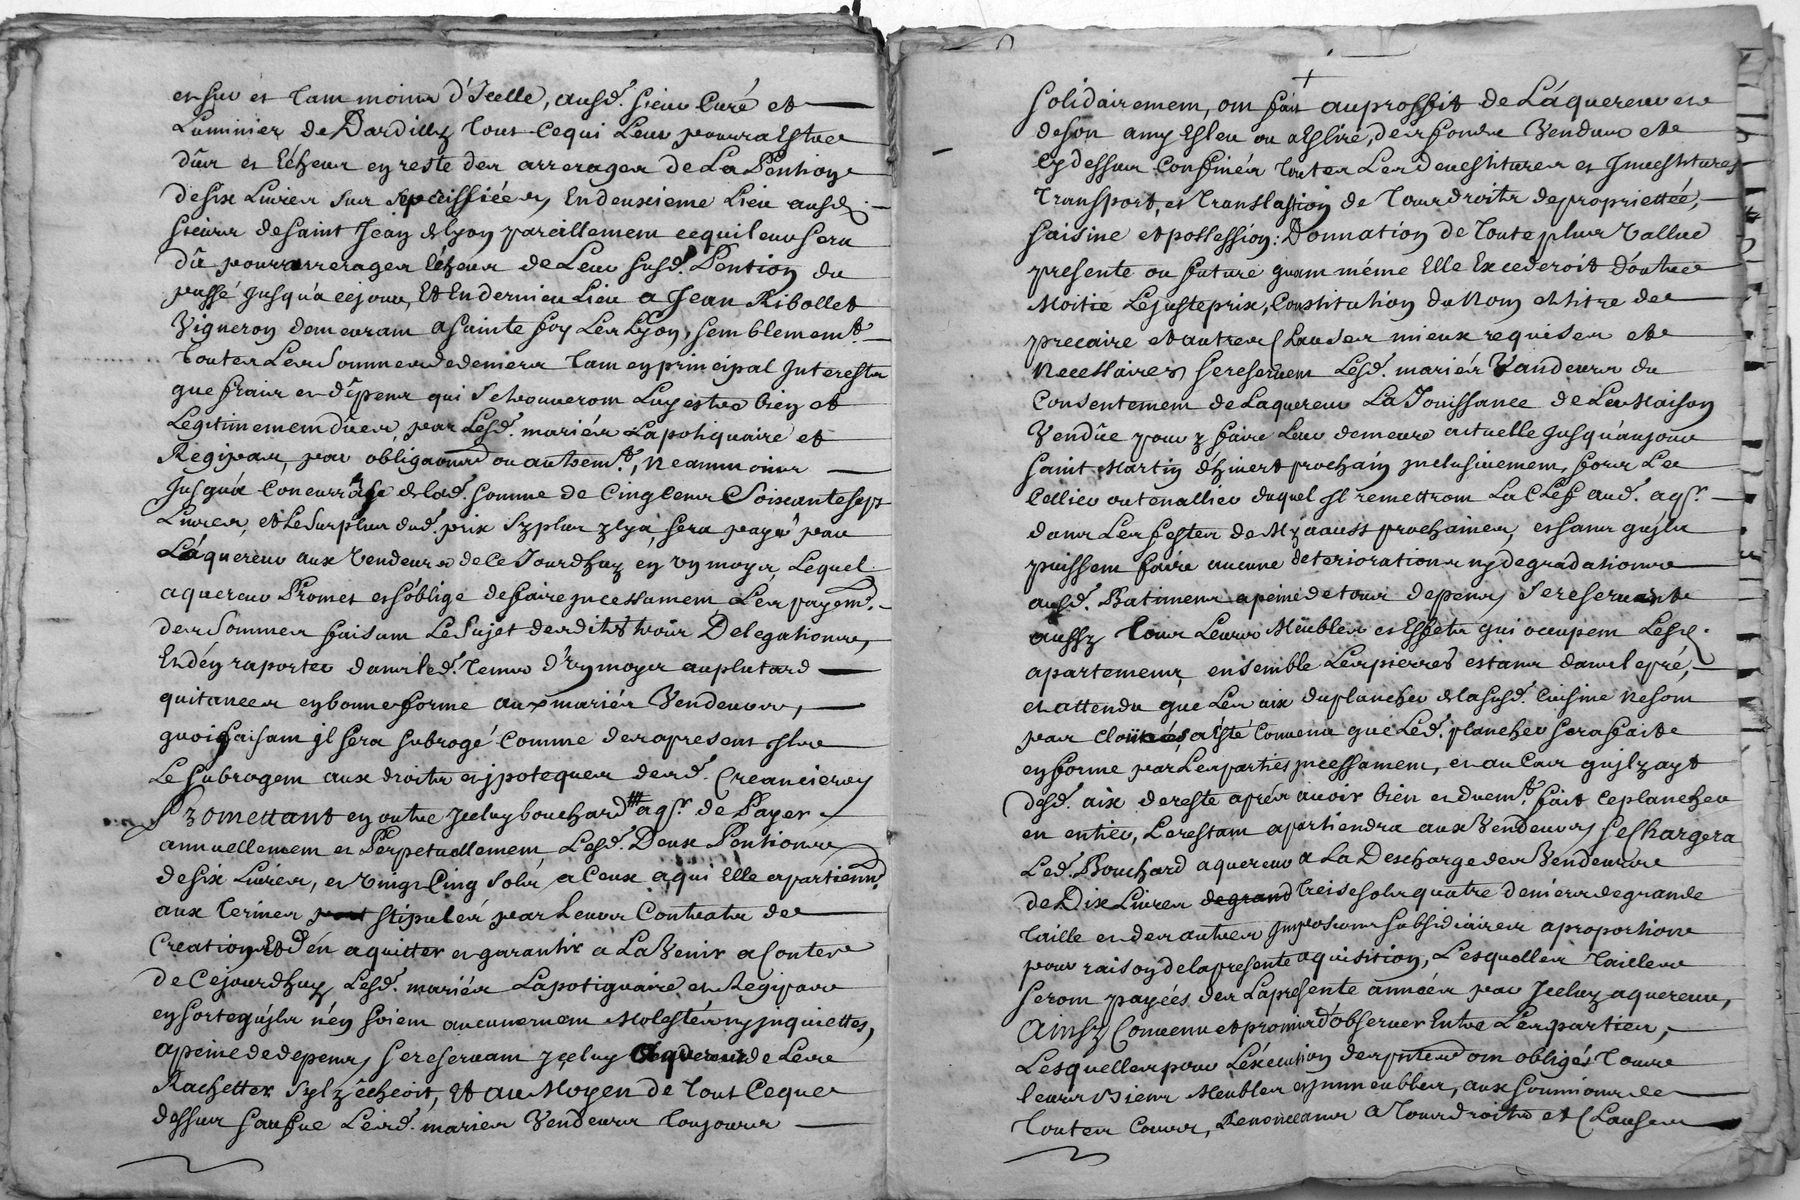 en sus et tam moins d'Icelle, ausd. sieur Curé et
Luminier de Dardilly tout ce qui Leur pourra Estre
dûs et Echeus en reste des arrerages de La Pention
de six Livres sus speciffiées, En deuxieme Lieu ausd.
sieurs de saint Jean de Lyon pareillement ce qui leur sera
dû pour arrerages écheus de Leur susd. Pention du
passé jusqu'a ce jour, Et En dernier Lieu a Jean Ribollet
Vigneron demeurant a sainte foy Les Lyon, semblement.
toutes Les sommes de deniers tam en principal Interests
que frais et dêpens qui se trouveront Luy estre bien et
Legitimement dues, par Lesd. mariés Lapotiquaire et
Regipas, par obligaons ou autrem.t, neanmoins
jusqu'a Concurrance de lad. somme de Cinq Cens Soixante sept
Livres, et Le surplus dud. prix sy plus y'lya, sera payé par
Láquereur aux Vendeurs de Ce Jourdhuy en un moys, Lequel
aquereur Promet et s'oblige de faire incessament Les payem.
des sommes faisant Le sujet desdites trois Delegations,
En dén raporter dans led. tems d'un moys au plutard
quitances en bonne forme aux mariés Vendeurs,
quoi faisant jl sera subrogé comme des apresent
Le subrogent aux droits et ypoteques desd. Creanciers
Promettant en outre Jceluy bouchard aqr. de Payer
annuellement et Perpetuellement, Lesd. Deux Pentions
de six Livres, et Vingt Cinq Sols, a Ceux a qui Elle apartienn.t
aux termes stipulés par Leurs Contrats de
Creation Et d'én aquitter et garantir a La Venir a Conter
de Cejourdhuy Lesd. mariés Lapotiquaire et Regipas
en sorte qu'jls n'én soient aucunement Molestés ny jnquiettes,
a peine de depens, se reservant jceluy aquereur de Les
Rachetter sylz êcheoit, Et au Moyen de tout Ceque
dessus sauf que Lesd. mariés Vendeurs toujours
solidairement, ont fait au proffit de Láquereur et
de son amy Esleu ou aEslire, des fonds Vendus et
cy dessus Confinés toutes Les devestitures et Jnvestitures
transport, et translassion de tous droits de propriettée,
saisine et possession: Donnation de toute plus Vallue
presente ou future quam méme Elle Excederoit d'outre
Moitié Lé juste prix, Constitution du Nom et titre de
precaire et autres Clauses mieux requises et
Necessaires se reservent Lesd. mariés Vandeurs du
Consentement de Laquereur La Jouissance de Les Maison
Vendûe pour y faire Leur demeure actuelle jusqu'au jour
saint Martin d'hivert prochain jnclusivement, fors Le
Cellier ou tenallier duquel jl remettront La Clef aud. aqr.
dans Les festes de My aoust prochaines, et sans qu'jls
puissent faire aucune deteriorations ny degradations
ausd. Batimens a peine de tous depens, se reservants
aussy tous Leurs Meubles et Effets qui occupent Lesd.
apartements, ensemble Les pierres estans dans le pré,
et attendu que Les aix du plancher de la susd. Cuisine ne sont
pas cloüées, a Esté Convenu que Led. plancher sera faite
en forme par Les parties jncessament, et au Cas qu'jl y ayt
desd. aix de reste aprés avoir bien et duem.t fait ce plancher
en entier, Le restant apartiendra aux Vendeurs, se Chargera
Led. Bouchard aquereur a La Descharge des Vendeurs
de Dix Livres de grand treise sols quatre deniers de grande
taille et des autres Jmposions subsidiaires a proportion
pour raison de la presente aquisition, Lesquelles tailles
seront payées des La presente année par Jceluy aquereur,
Ainsy Convenu et promis d'observer Entre Les parties,
Lesquelles pour Léxecution des presentes ont obligés tous
leurs biens Meubles et jmmeubles, aux soumions de
toutes Cours, Renonceans A tous droits et Clauses